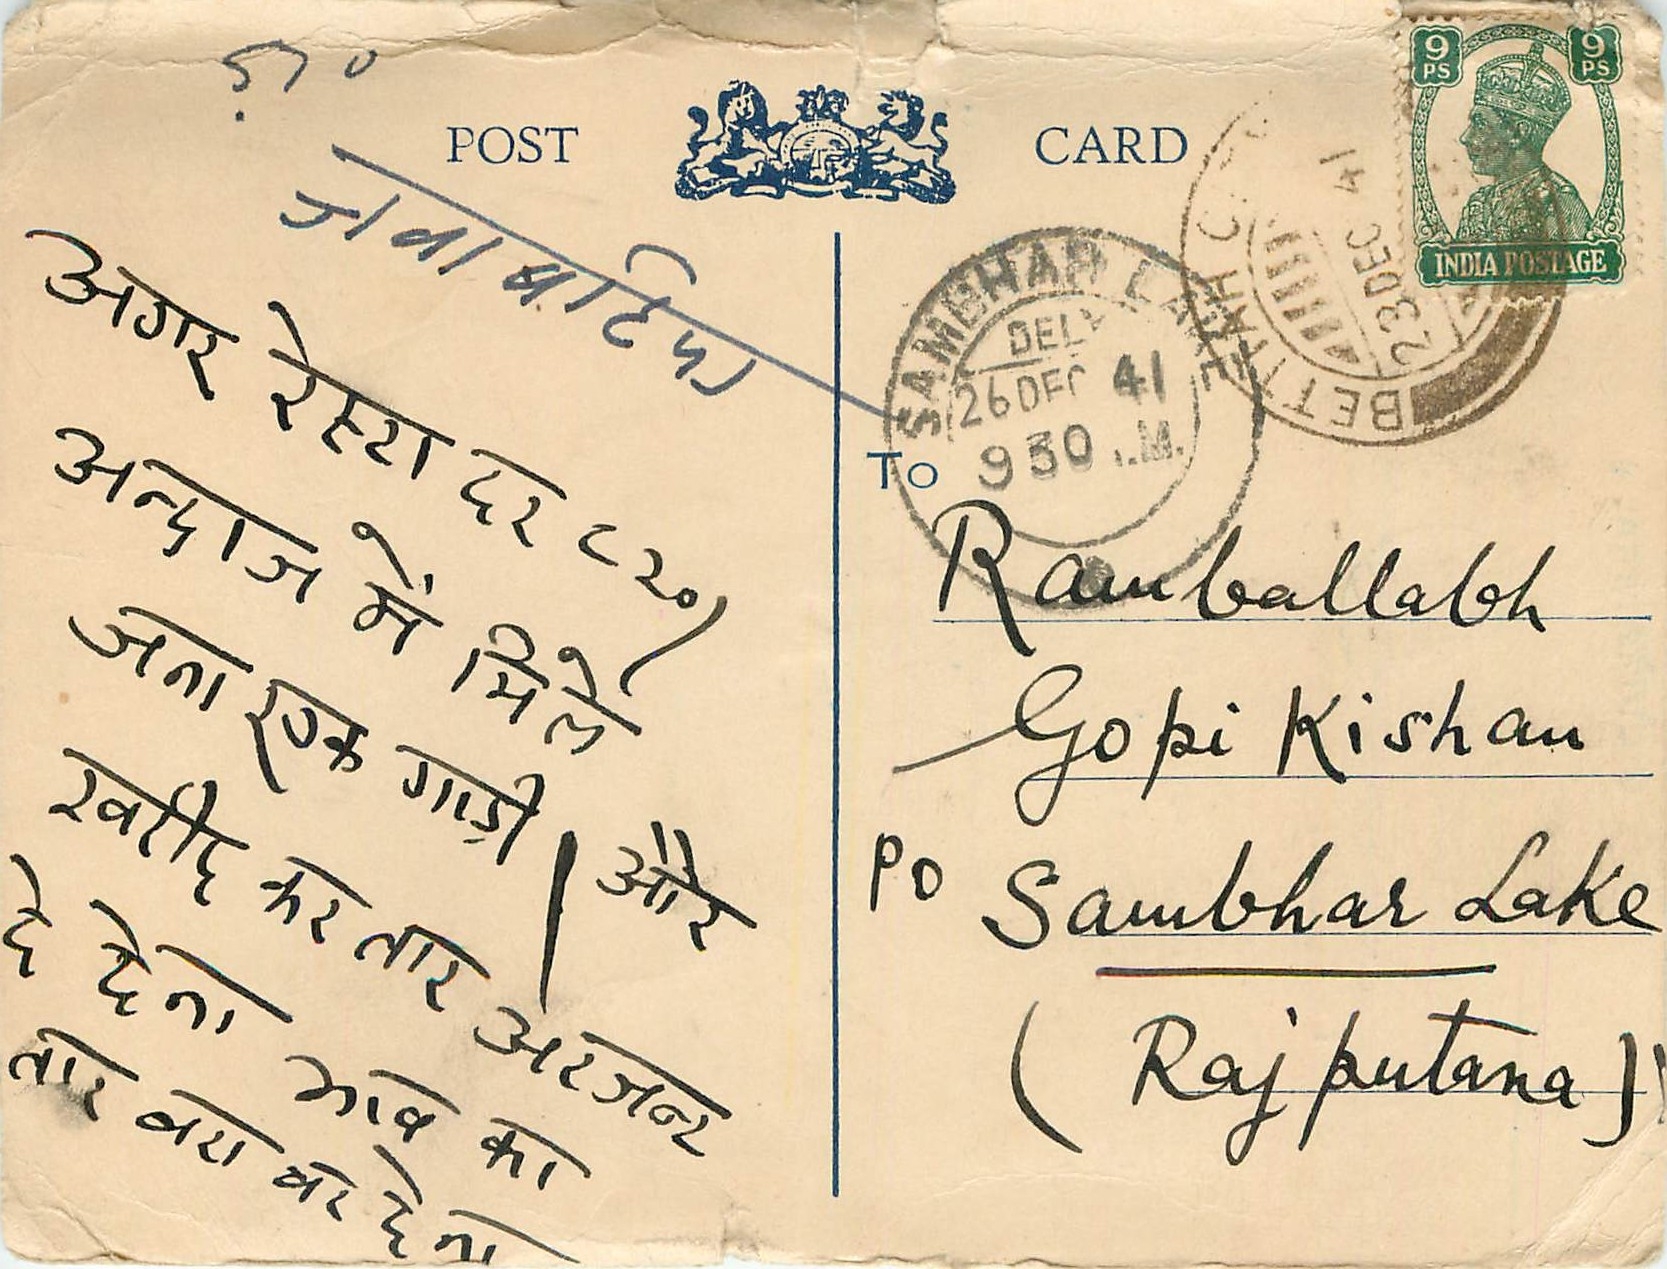 POST CARD
9 PS 9 PS
INDIA POSTAGE
23 DEC 41
SAMBHAR LAKE
DELY
26 DEC 41
9 30 .M.
To
Ramballabh
Gopi Kishan
PO Sambhar Lake
(Rajputana)
अगर रेस्टा दर ८२०)
अन्दाज में मिले
एक गाड़ी
खरीद कर तार अरजन्ट
दे देना भाव का
और
तार कर देना